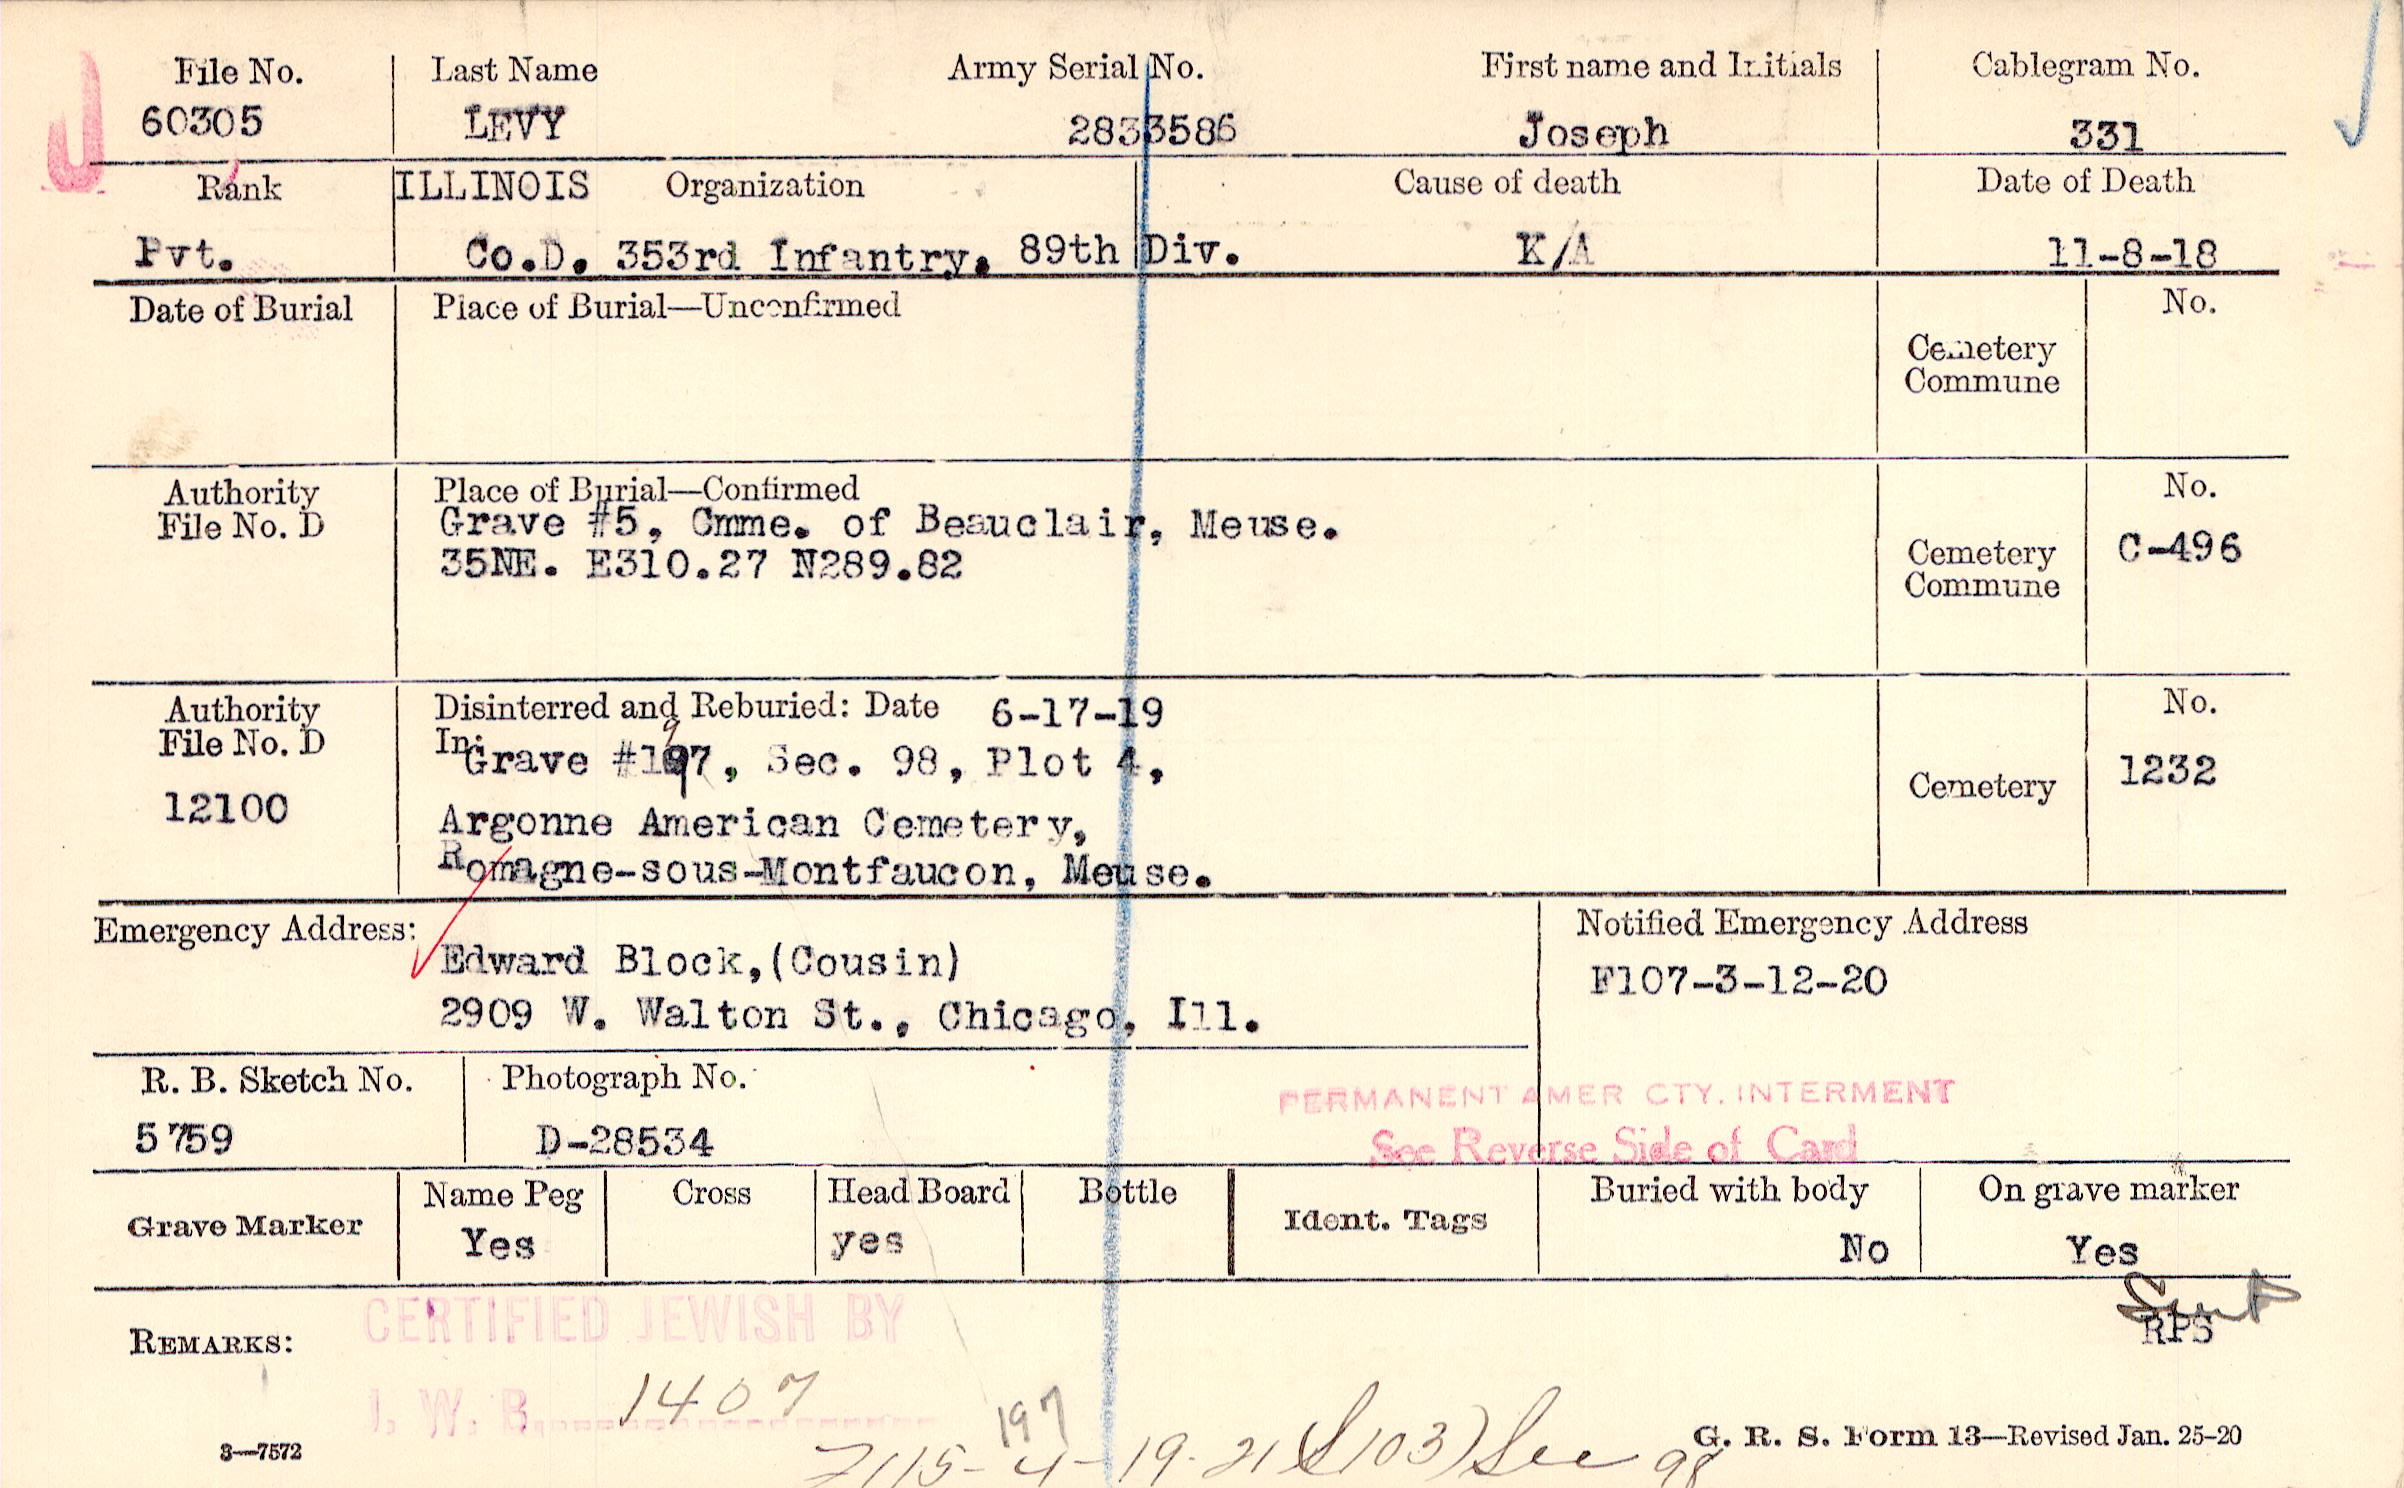 File No. Last Name Army Serial No. First name and Initials Cablegram No.
60305 LEVY 2833586 Joseph 331
Rank ILLINOIS Organization Cause of death Date of Death
Pvt. Co.D. 353rd Infantry. 89th Div. K/A 11-8-18
Date of Burial Place of Burial—Unconfirmed No.
Cemetery
Commune
Authority Place of Burial—Confirmed No.
File No. D Grave #5, Cmme. of Beauclair, Meuse.
35NE. E310.27 N289.82 Cemetery C-496
Commune
Authority Disinterred and Reburied: Date 6-17-19 No.
File No. D In: Grave #197, Sec. 98, Plot 4,
9
12100 Cemetery 1232
Argonne American Cemetery,
Romagne-sous-Montfaucon, Meuse.
Emergency Address: Notified Emergency Address
Edward Block,(Cousin) F107-3-12-20
2909 W. Walton St., Chicago, Ill.
R. B. Sketch No. Photograph No. PERMANENT AMER CTY. INTERMENT
5759 D-28534 See Reverse Side of Card
Grave Marker Name Peg Cross Head Board Bottle Ident. Tags Buried with body On grave marker
Yes yes No Yes
CERTIFIED JEWISH BY
REMARKS: RPS
J. W. B. 1407
197
3—7572 G. R. S. Form 13—Revised Jan. 25-20
4-19-21 (103) See 98